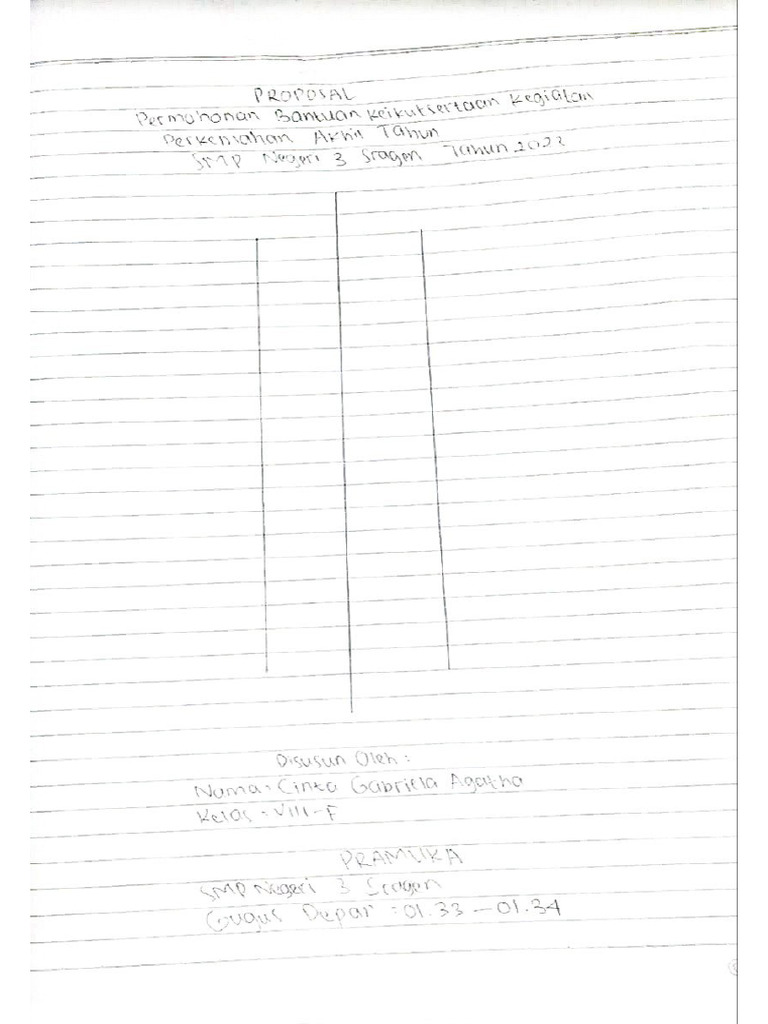 PROPOSAL
Permohonan Bantuan Keikutsertaan Kegiatan
Perkemahan Akhir Tahun
SMP Negeri 3 Sragen Tahun 2022
Disusun Oleh :
Nama : Cinta Gabriela Agatha
Kelas : VIII-F
PRAMUKA
SMP Negeri 3 Sragen
Gugus Depan : 01.33 - 01.34